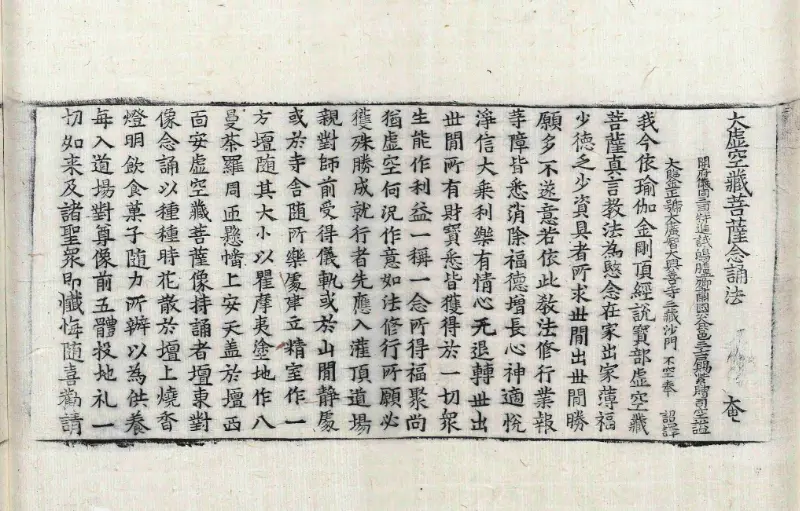 大虛空藏菩薩念誦法 奄
開府儀同三司特進試鴻臚卿肅國公食邑三千戶賜紫贈司空謚
大鑒正號大廣智大興善寺三藏沙門 不空奉 詔譯
我今依瑜伽金剛頂經說寶部虛空藏
菩薩真言教法為愍念在家出家薄福
少德乏少資具者所求世間出世間勝
願多不遂意若依此教法修行業報
等障皆悉消除福德增長心神適悅
淨信大乘利樂有情心无退轉世出
世間所有財寶悉皆獲得於一切眾
生能作利益一稱一念所得福聚尚
猶虛空何況作意如法修行所願必
獲殊勝成就行者先應入灌頂道場
親對師前受得儀軌或於山間靜處
或於寺舍隨所樂處建立精室作一
方壇隨其大小以瞿摩夷塗地作八
曼荼羅周匝懸幡上安天盖於壇西
面安虛空藏菩薩像持誦者壇東對
像念誦以種種時花散於壇上燒香
燈明飲食菓子隨力所辦以為供養
每入道場對尊像前五體投地礼一
切如来及諸聖眾即懺悔隨喜勸請